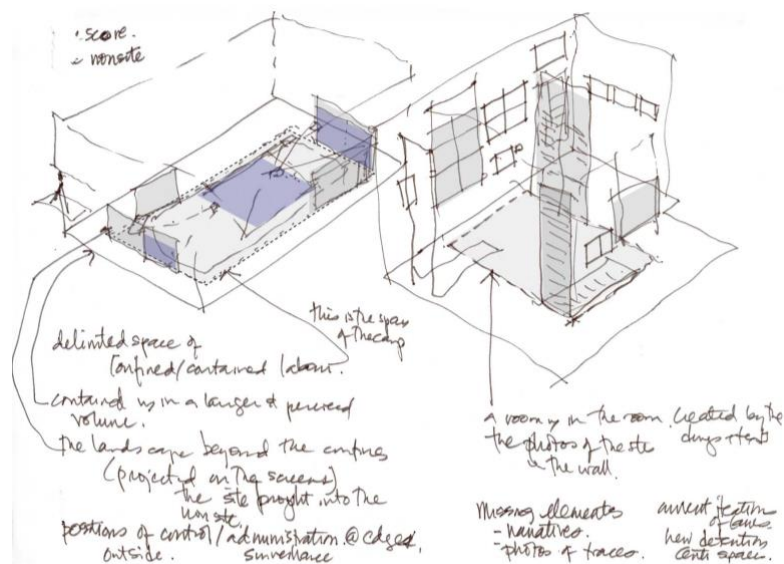 · score.
· nonsite
this is the space
of the camp
delimited space of
confined/contained labour.
contained w/in a larger &
volume.
the landscape beyond the confines
(projected on the screens)
the site brought into the
nonsite.
positions of control/administration @ edges,
outside. surveillance
a room w/in the room. created by the
the photos of the site
the wall.
missing elements
- narratives.
- photos of traces.
new detention
space.